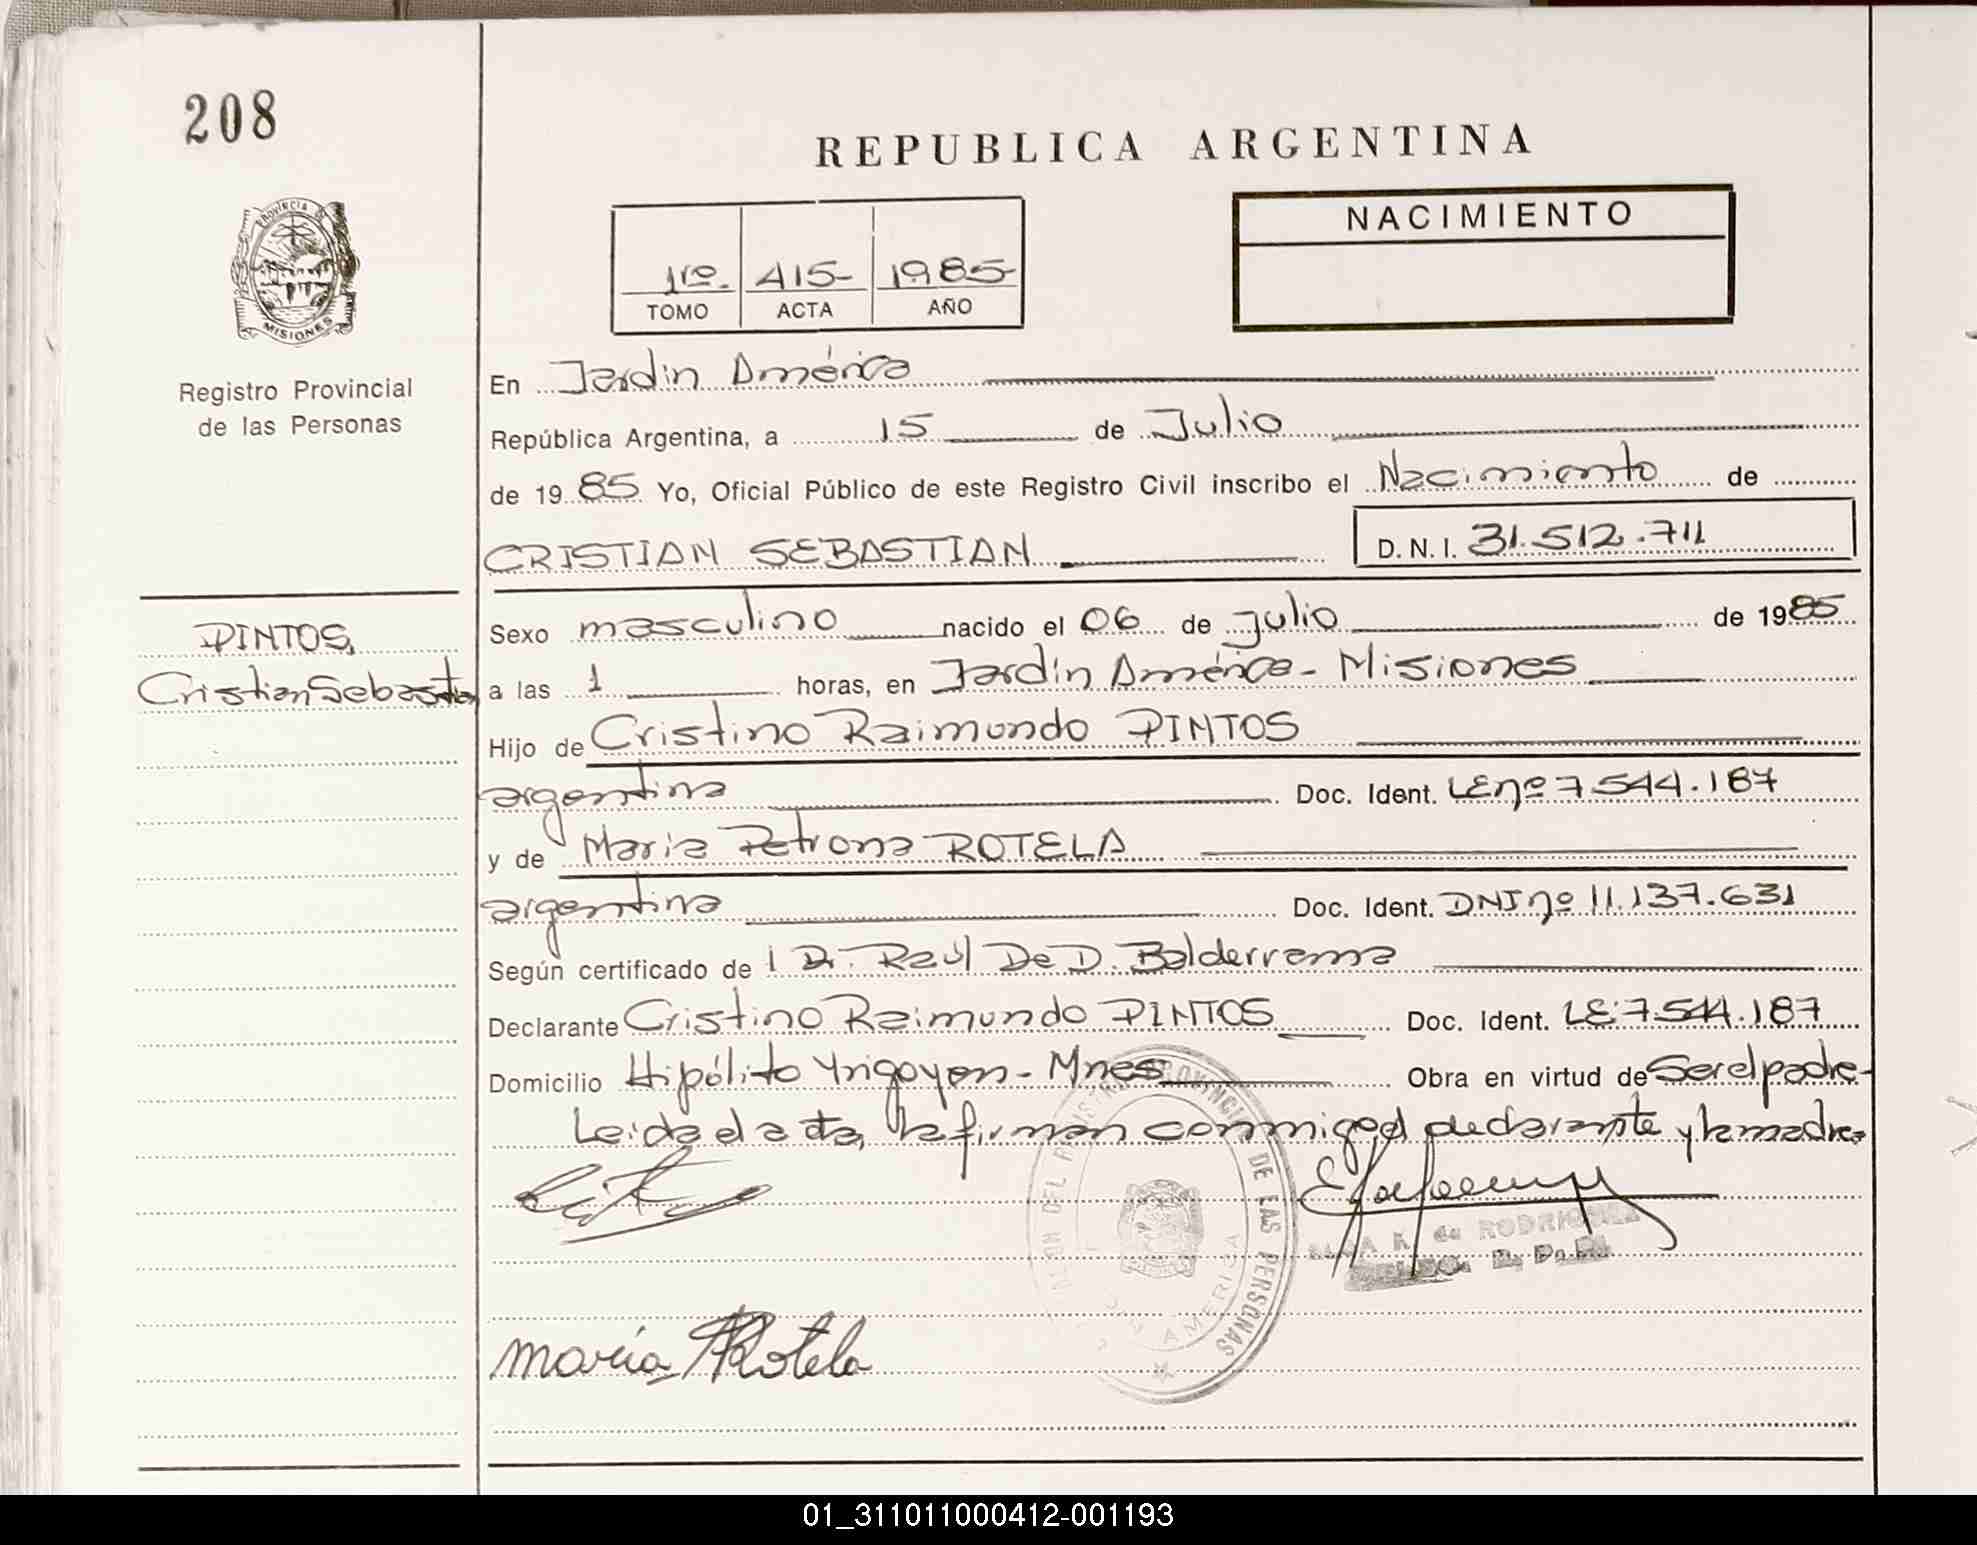 208
REPUBLICA ARGENTINA
PROVINCIA DE
MISIONES
Registro Provincial
de las Personas
1ro. 415- 1985-
TOMO ACTA AÑO
NACIMIENTO
En Jardin América
República Argentina, a 15 de Julio
de 1985 Yo, Oficial Público de este Registro Civil inscribo el Nacimiento de
CRISTIAN SEBASTIAN D.N.I. 31.512.711
PINTOS,
Cristian Sebastian
Sexo masculino nacido el 06 de julio de 1985
a las 1 horas, en Jardín América - Misiones
Hijo de Cristino Raimundo PINTOS
argentina Doc. Ident. LE nº 7.544.187
y de Maria Petrona ROTELA
argentina Doc. Ident. DNI nº 11.137.631
Según certificado de Dr. Raúl De D. Balderrama
Declarante Cristino Raimundo PINTOS Doc. Ident. LE: 7.544.187
Domicilio Hipólito Yrigoyen - Mnes Obra en virtud de Ser el padre-
Leida el acta, la firman conmigo, el declarante y la madre
DE LAS PERSONAS
AMERICA
K. de RODRIGUEZ
Maria P Rotela
01_311011000412-001193